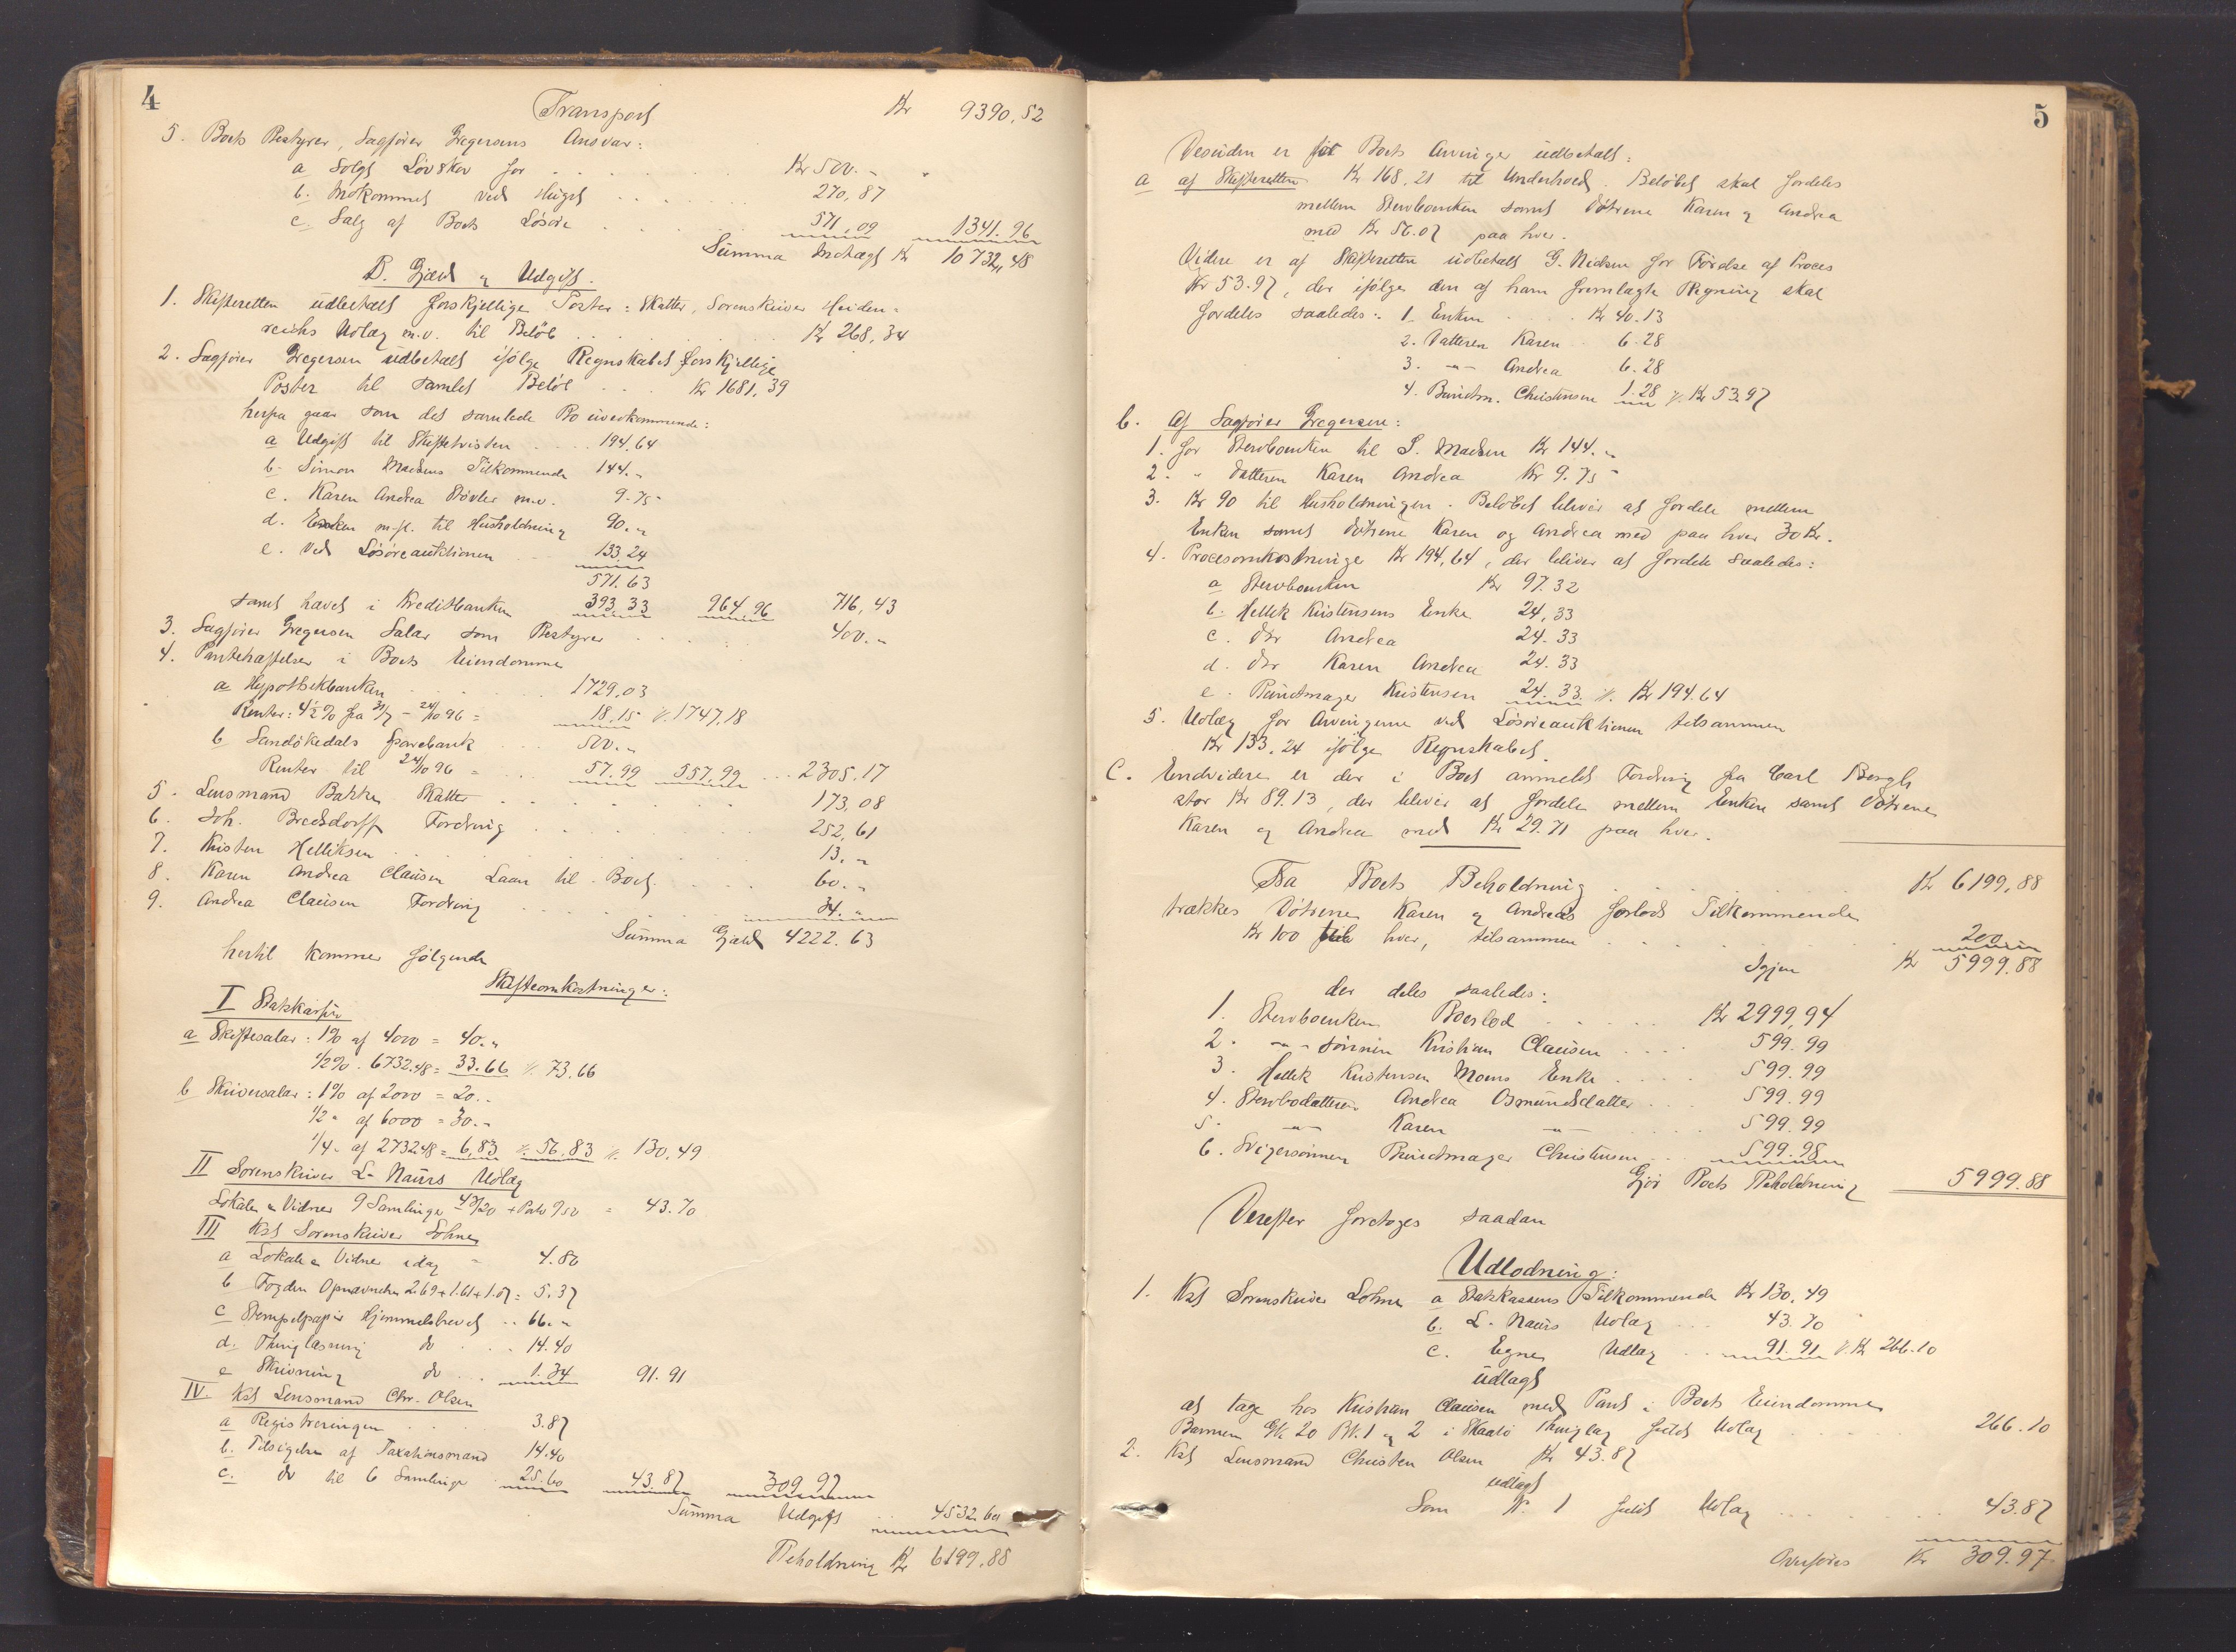 4
Transport Kr 9390,52
5. Boets Bestyrer, Sagfører Gregersens Ansvar:
a Solgt Løvskov for Kr 500.-
b. Indkommet ved Hugst 270,87
c. Salg af Boets Løsøre 571,09 1341.96
Summa Indtægt Kr 10732,48
B. Gjæld og Udgift.
1. Skifteretten udbetalt forskjellige Poster: Skatter, Sorenskriver Heiden-
reichs Udlæg m.v. til Beløb Kr 268,34
2. Sagfører Gregersen udbetalt ifølge Regnskabet forskjellige
Poster til samlet Beløb Kr 1681,39
herfra gaar som det samlede Bo uvedkommende:
a Udgift til Skiftetvisten 194,64
b. Simon Madsens Tilkommende 144.-
c. Karen Andrea Støvler m.v. 9.75
d. Enken m.fl. til Husholdning 90.-
e. Ved Løsøreauktionen 133.24
571.63
samt hævet i Kreditbanken 393,33 964.96 716,43
3. Sagfører Gregersen Salær som Bestyrer 400.-
4. Pantehæftelser i Boets Eiendomme
a Hypothekbanken 1729,03
Renter: 4½% fra 31/7 - 24/10 96 = 18.15 /. 1747,18
b Sandøkedals Sparebank 500.-
Renter til 24/10 96 = 57.99 557,99 2305,17
5. Lensmand Bakke Skatter 173,08
6. Joh. Bredsdorff Fordring 252,61
7. Kristen Helliksen 13.-
8. Karen Andrea Clausen Laan til Boet 60.-
9. Andrea Clausen Fordring 34.-
Summa Gjæld 4222.63
hertil kommer følgende
Skifteomkostninger:
I Statskassen
a Skiftesalær: 1% af 4000 = 40.-
1/2% - 6732.48 = 33.66 /. 73.66
b Skriversalær: 1% af 2000 = 20.-
1/2 - af 6000 = 30.-
1/4 - af 2732.48 = 6,83 /. 56,83 /. 130,49
II Sorenskriver L. Naurs Udlæg
Lokale & Vidner 9 Samlinger + Porto = 43.70
III Kst Sorenskriver Lohne
a Lokale & Vidner idag = 4.80
b Fogden Opnævnelse 2.69 + 1.61 + 1.07 = 5.37
c Stempelpapir Hjemmelsbrevet 66.-
d. Thinglæsning do 14.40
e Skrivning do 1.34 91.91
IV. Kst Lensmand Chr. Olsen
a Registreringen 3.87
b. Tilsigelse af Taxationsmænd 14.40
c. do til 6 Samlinger 25.60 43.87 309.97
Summa Udgift 4532.60
Beholdning Kr 6199.88
5
Desuden er Boets Arvinger udbetalt:
a af Skifteretten Kr 168,21 til Underhold. Beløbet skal fordeles
mellem Stervboenken samt Døtrene Karen og Andrea
med Kr 56.07 paa hver.
Videre er af Skifteretten udbetalt G. Nielsen for Førelse af Proces
Kr 53.97, der ifølge den af ham fremlagte Regning skal
fordeles saaledes: 1. Enken Kr 40.13
2. Datteren Karen 6.28
3. -"- Andrea 6.28
4. Buntm. Christensen 1.28 /. Kr 53.97
b. Af Sagfører Gregersen:
1. for Stervboenken til S. Madsen Kr 144.-
2. " Datteren Karen Andrea Kr 9.75
3. Kr 90 til Husholdningen. Beløbet bliver at fordele mellem
Enken samt Døtrene Karen og Andrea med paa hver 30 Kr.
4. Procesomkostninger Kr 194,64, der bliver at fordele saaledes:
a Stervboenken Kr 97.32
b. Hellek Kristensens Enke 24,33
c. Dtr Andrea 24.33
d. Dtr Karen Andrea 24.33
e. Buntmager Kristensen 24.33 /. Kr 194.64
5. Udlæg for Arvingerne ved Løsøreauktionen tilsammen
Kr 133.24 ifølge Regnskabet.
C. Endvidere er der i Boet anmeldt Fordring fra Carl Bergh
stor Kr 89.13, der bliver at fordele mellem Enken samt Døtrene
Karen og Andrea med Kr 29.71 paa hver.
Fra Boets Beholdning Kr 6199,88
trækkes Døtrene Karen og Andreas forlods Tilkommende
Kr 100 hver, tilsammen 200.-
Igjen Kr 5999.88
der deles saaledes:
1. Stervboenkens Boeslod Kr 2999,94
2. -"- sønnen Kristian Clausen 599.99
3. Hellek Kristensen Moens Enke 599.99
4. Stervbodatteren Andrea Osmundsdatter 599.99
5. -"- Karen -"- 599.99
6. Svigersønnen Buntmager Christensen 599.98
Gjør Boets Beholdning 5999.88
Derefter foretoges saadan
Udlodning:
1. Kst Sorenskriver Lohne a Statskassens Tilkommende Kr 130,49
b. L. Naurs Udlæg 43.70
c. Egne Udlæg 91.91 /. Kr 266.10
udlagt
at tage hos Kristian Clausen med Pant i Boets Eiendomme
Barmen G.N. 20 B.N. 1 og 2 i Skaatø Thinglag fuldt Udlæg 266.10
2. Kst Lensmand Christen Olsen Kr 43.87
udlagt
Som N. 1 fuldt Udlæg 43.87
Overføres Kr 309.97